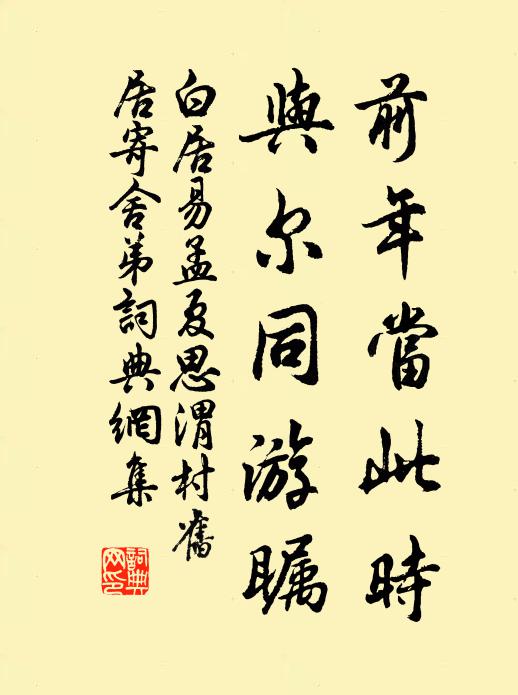 前年當此時
與尔同游瞩
白居易孟夏思渭村舊
居寄舍弟詞典網集
詞典
网印